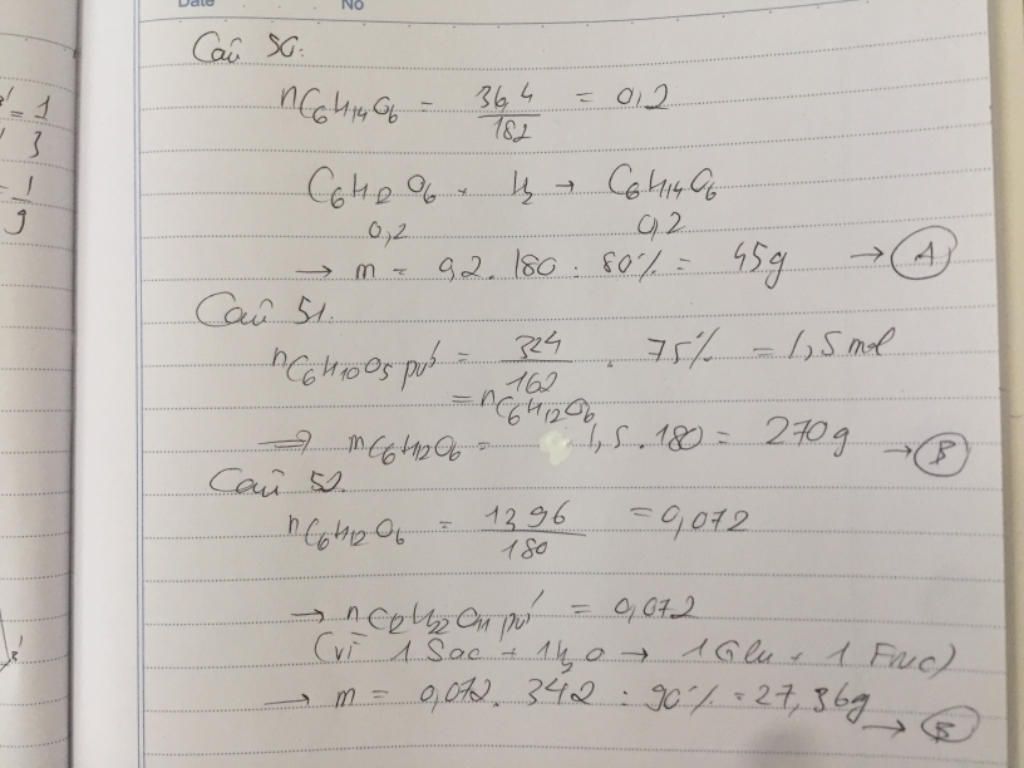 Date No
Câu 50:
nC6H14O6 = 36,4/182 = 0,2
C6H12O6 + H2 → C6H14O6
0,2 0,2
→ m = 0,2 . 180 : 80% = 45g → A
Câu 51.
nC6H10O5 pứ = 324/162 . 75% = 1,5 mol
= nC6H12O6
⇒ mC6H12O6 = 1,5 . 180 = 270g → B
Câu 52.
nC6H12O6 = 12,96/180 = 0,072
→ nC12H22O11 pứ = 0,072
(vì 1 Sac + 1H2O → 1 Glu + 1 Fruc)
→ m = 0,072 . 342 : 90% = 27,36g → B